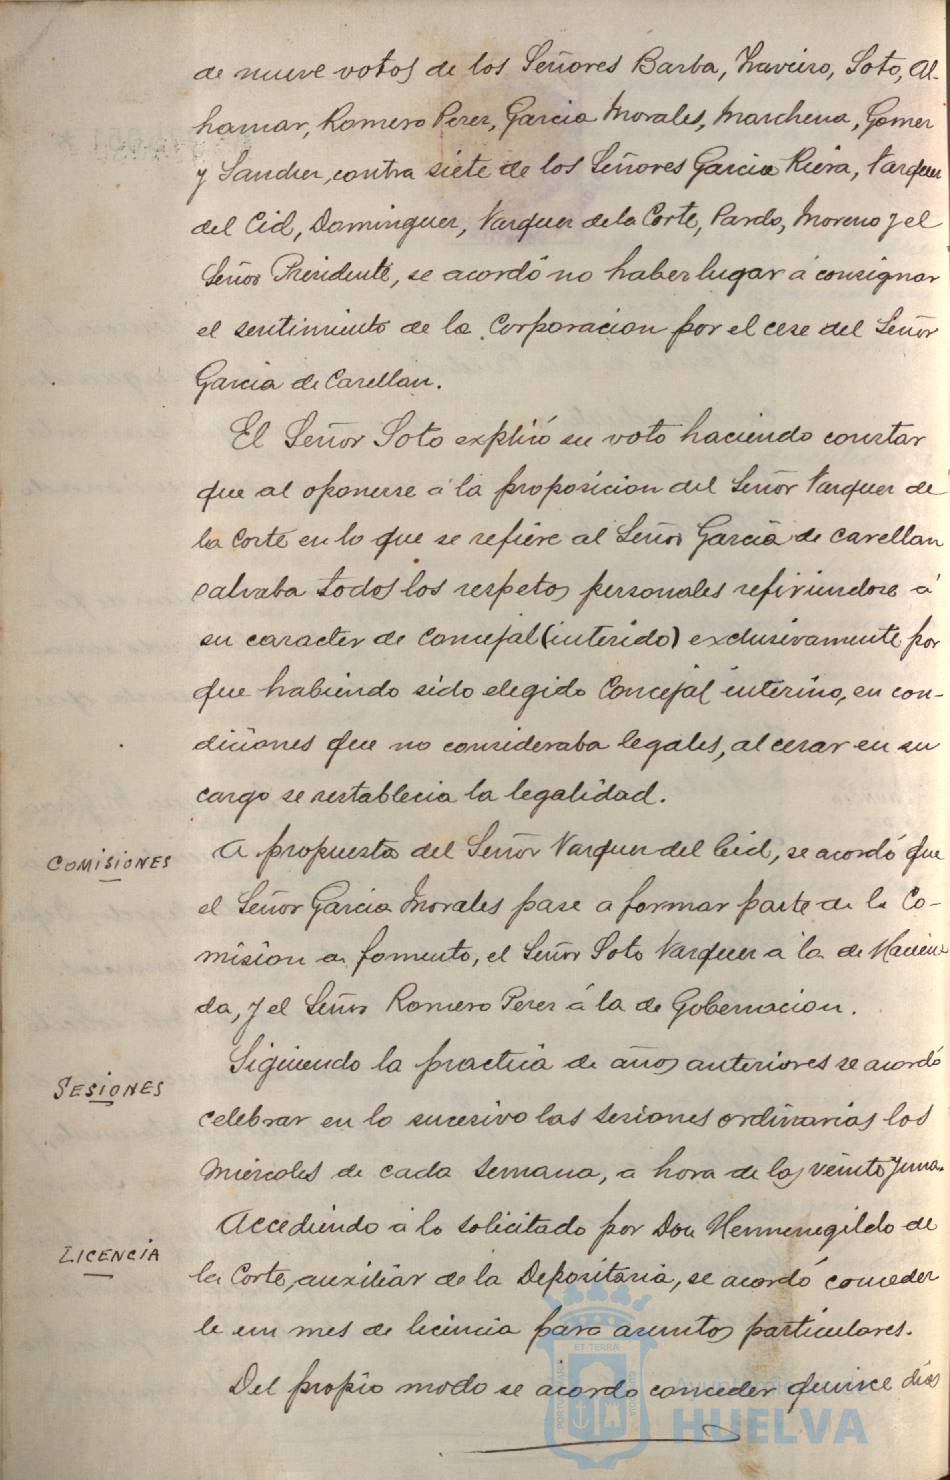 de nueve votos de los Señores Barba, Traviero, Soto, Al-
hamar, Romero Perez, Garcia Morales, Marchena, Gomez
y Sanchez, contra siete de los Señores Garcia Riera, Vazquez
del Cid, Dominguez, Vazquez de la Corte, Pardo, Moreno y el
Señor Presidente, se acordó no haber lugar á consignar
el sentimiento de la Corporacion por el cese del Señor
Garcia de Casellan.
El Señor Soto explicó su voto haciendo constar
que al oponerse á la proposicion del Señor Vazquez de
la Corte en lo que se refiere al Señor Garcia de Casellan
salvaba todos los respetos personales refiriendose á
su caracter de Concejal (interido) exclusivamente por
que habiendo sido elegido Concejal interino, en con-
diciones que no consideraba legales, al cesar en su
cargo se restablecia la legalidad.
COMISIONES
A propuesta del Señor Vazquez del Cid, se acordó que
el Señor Garcia Morales pase a formar parte de la Co-
mision de fomento, el Señor Soto Vazquez á la de Hacien
da, y el Señor Romero Perez á la de Gobernacion.
SESIONES
Siguiendo la practica de años anteriores se acordó
celebrar en lo sucesivo las sesiones ordinarias los
Miércoles de cada semana, a hora de las veinte y una.
LICENCIA
Accediendo á lo solicitado por Don Hermenegildo de
la Corte, auxiliar de la Depositaria, se acordó conceder
le un mes de licencia para asuntos particulares.
Del propio modo se acordo conceder quince dias
ET TERRA
Ayuntamiento de
HUELVA